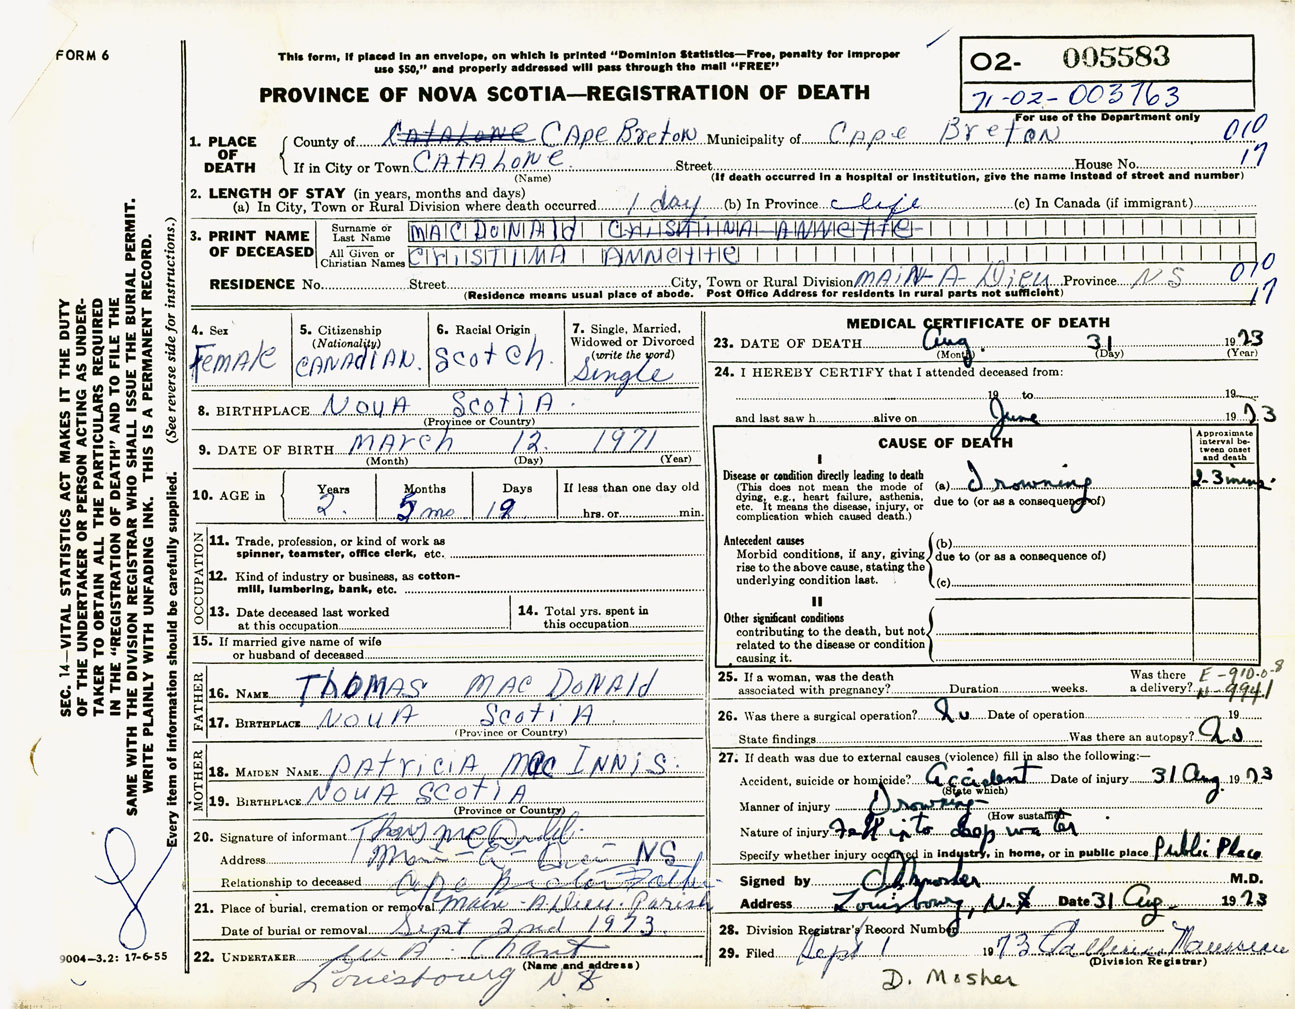 FORM 6
This form, if placed in an envelope, on which is printed "Dominion Statistics—Free, penalty for improper
use $50," and properly addressed will pass through the mail "FREE"
O2- 005583
71-02-003763
For use of the Department only
PROVINCE OF NOVA SCOTIA—REGISTRATION OF DEATH
1. PLACE OF DEATH
County of Catalone Cape Breton Municipality of Cape Breton 010
If in City or Town CATALONE Street House No. 17
(Name) (If death occurred in a hospital or institution, give the name instead of street and number)
2. LENGTH OF STAY (in years, months and days)
(a) In City, Town or Rural Division where death occurred 1 day (b) In Province life (c) In Canada (if immigrant)
3. PRINT NAME OF DECEASED
Surname or Last Name MACDONALD CHRISTINA ANNETTE
All Given or Christian Names CHRISTINA ANNETTE
RESIDENCE No. Street City, Town or Rural Division MAIN-A-Dieu Province NS 010
(Residence means usual place of abode. Post Office Address for residents in rural parts not sufficient) 17
4. Sex Female
5. Citizenship (Nationality) CANADIAN.
6. Racial Origin Scotch.
7. Single, Married, Widowed or Divorced (write the word) Single
8. BIRTHPLACE NOVA SCOTIA.
(Province or Country)
9. DATE OF BIRTH MARCH 12. 1971
(Month) (Day) (Year)
10. AGE in Years 2. Months 5 mo Days 19 If less than one day old hrs. or min.
OCCUPATION
11. Trade, profession, or kind of work as
spinner, teamster, office clerk, etc.
12. Kind of industry or business, as cotton-
mill, lumbering, bank, etc.
13. Date deceased last worked
at this occupation
14. Total yrs. spent in
this occupation
15. If married give name of wife
or husband of deceased
FATHER
16. NAME THOMAS MACDONALD
17. BIRTHPLACE NOVA SCOTIA.
(Province or Country)
MOTHER
18. MAIDEN NAME PATRICIA MacINNIS.
19. BIRTHPLACE NOVA SCOTIA
(Province or Country)
20. Signature of informant
Address Main-A-Dieu NS
Relationship to deceased Cape Breton Father
21. Place of burial, cremation or removal Main-A-Dieu Parish
Date of burial or removal Sept 2nd 1973
22. UNDERTAKER W A. Chant
(Name and address)
Louisbourg N S
MEDICAL CERTIFICATE OF DEATH
23. DATE OF DEATH Aug. 31 1973
(Month) (Day) (Year)
24. I HEREBY CERTIFY that I attended deceased from:
19 to 19
and last saw h alive on June 1973
CAUSE OF DEATH
Approximate interval between onset and death
I
Disease or condition directly leading to death
(This does not mean the mode of
dying, e.g., heart failure, asthenia,
etc. It means the disease, injury, or
complication which caused death.)
(a) Drowning 2-3 mins.
due to (or as a consequence of)
Antecedent causes
Morbid conditions, if any, giving
rise to the above cause, stating the
underlying condition last.
(b)
due to (or as a consequence of)
(c)
II
Other significant conditions
contributing to the death, but not
related to the disease or condition
causing it.
25. If a woman, was the death
associated with pregnancy? Duration weeks. Was there a delivery?
E-910.0-8
N-9941
26. Was there a surgical operation? No Date of operation 19
State findings Was there an autopsy? No
27. If death was due to external causes (violence) fill in also the following:—
Accident, suicide or homicide? Accident Date of injury 31 Aug. 1973
(State which)
Manner of injury Drowning
(How sustained)
Nature of injury Fell into deep water
Specify whether injury occurred in industry, in home, or in public place Public Place
Signed by M.D.
Address Louisbourg, N.S Date 31 Aug 1973
28. Division Registrar's Record Number
29. Filed Sept 1 1973
(Division Registrar)
D. Mosher
SEC. 14—VITAL STATISTICS ACT MAKES IT THE DUTY
OF THE UNDERTAKER OR PERSON ACTING AS UNDER-
TAKER TO OBTAIN ALL THE PARTICULARS REQUIRED
IN THE "REGISTRATION OF DEATH" AND TO FILE THE
SAME WITH THE DIVISION REGISTRAR WHO SHALL ISSUE THE BURIAL PERMIT.
WRITE PLAINLY WITH UNFADING INK. THIS IS A PERMANENT RECORD.
Every item of information should be carefully supplied. (See reverse side for instructions.)
9004-3.2: 17-6-55